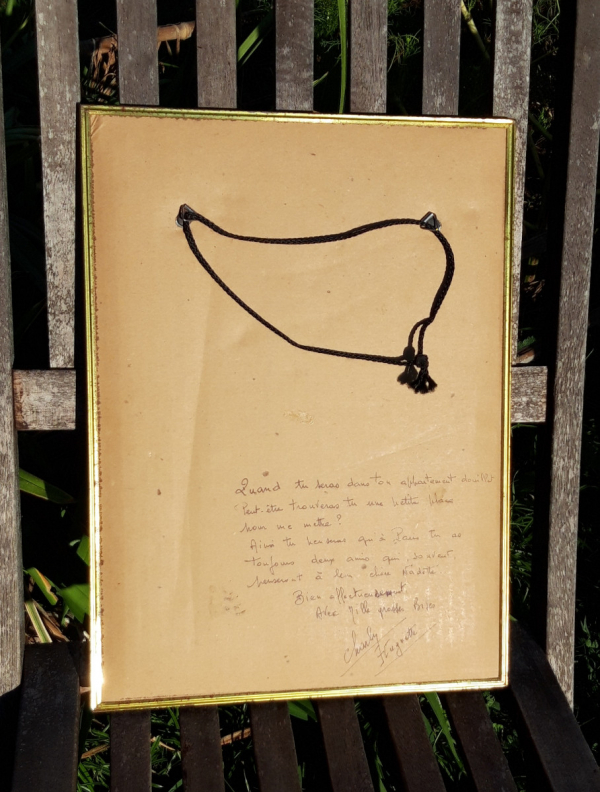 Quand tu seras dans ton appartement
Peut-être trouveras tu une petite place
pour me mettre?
Ainsi tu penseras qu'à Paris tu as
toujours deux amis qui souvent
penseront à leur chère
Bien affectueusement
Avec Mille grosses Bises
Huguette